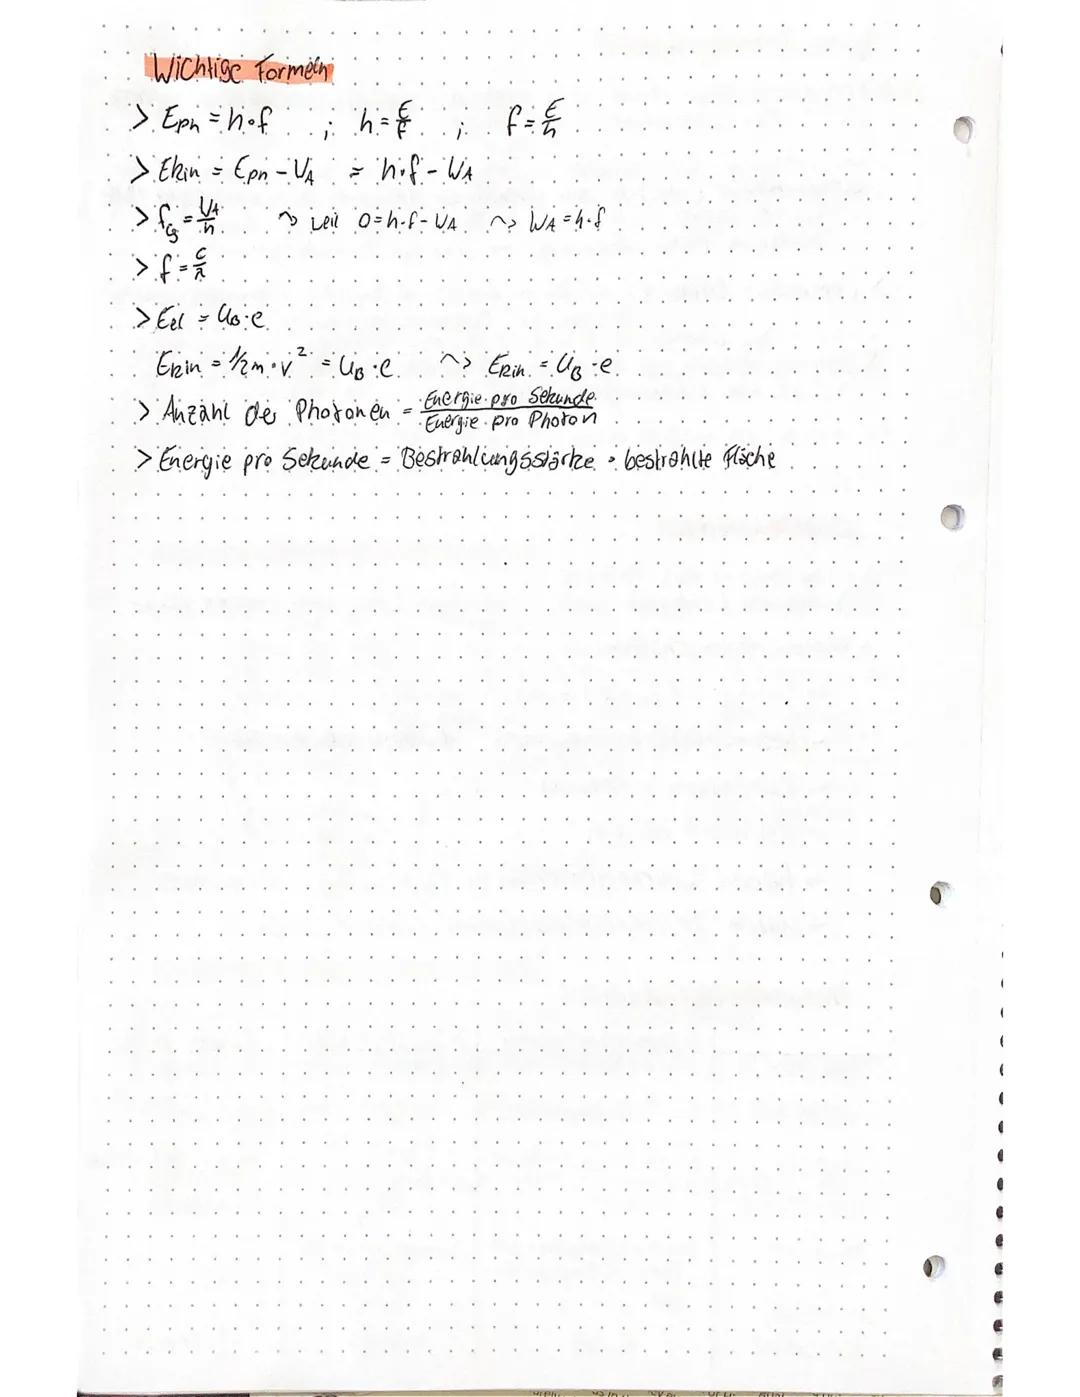 Wichtige Formeln
> Eph = h∘f ; h = E/f ; f = E/h
> Ekin = Eph - WA = h·f - WA
> fG = WA/h ~> weil 0 = h·f - WA ~> WA = h·f
> f = c/λ
> Eel = UB·e
Ekin = 1/2 m·v² = UB·e ~> Ekin = UB·e
> Anzahl der Photonen = Energie pro Sekunde / Energie pro Photon
> Energie pro Sekunde = Bestrahlungsstärke · bestrahlte Fläche